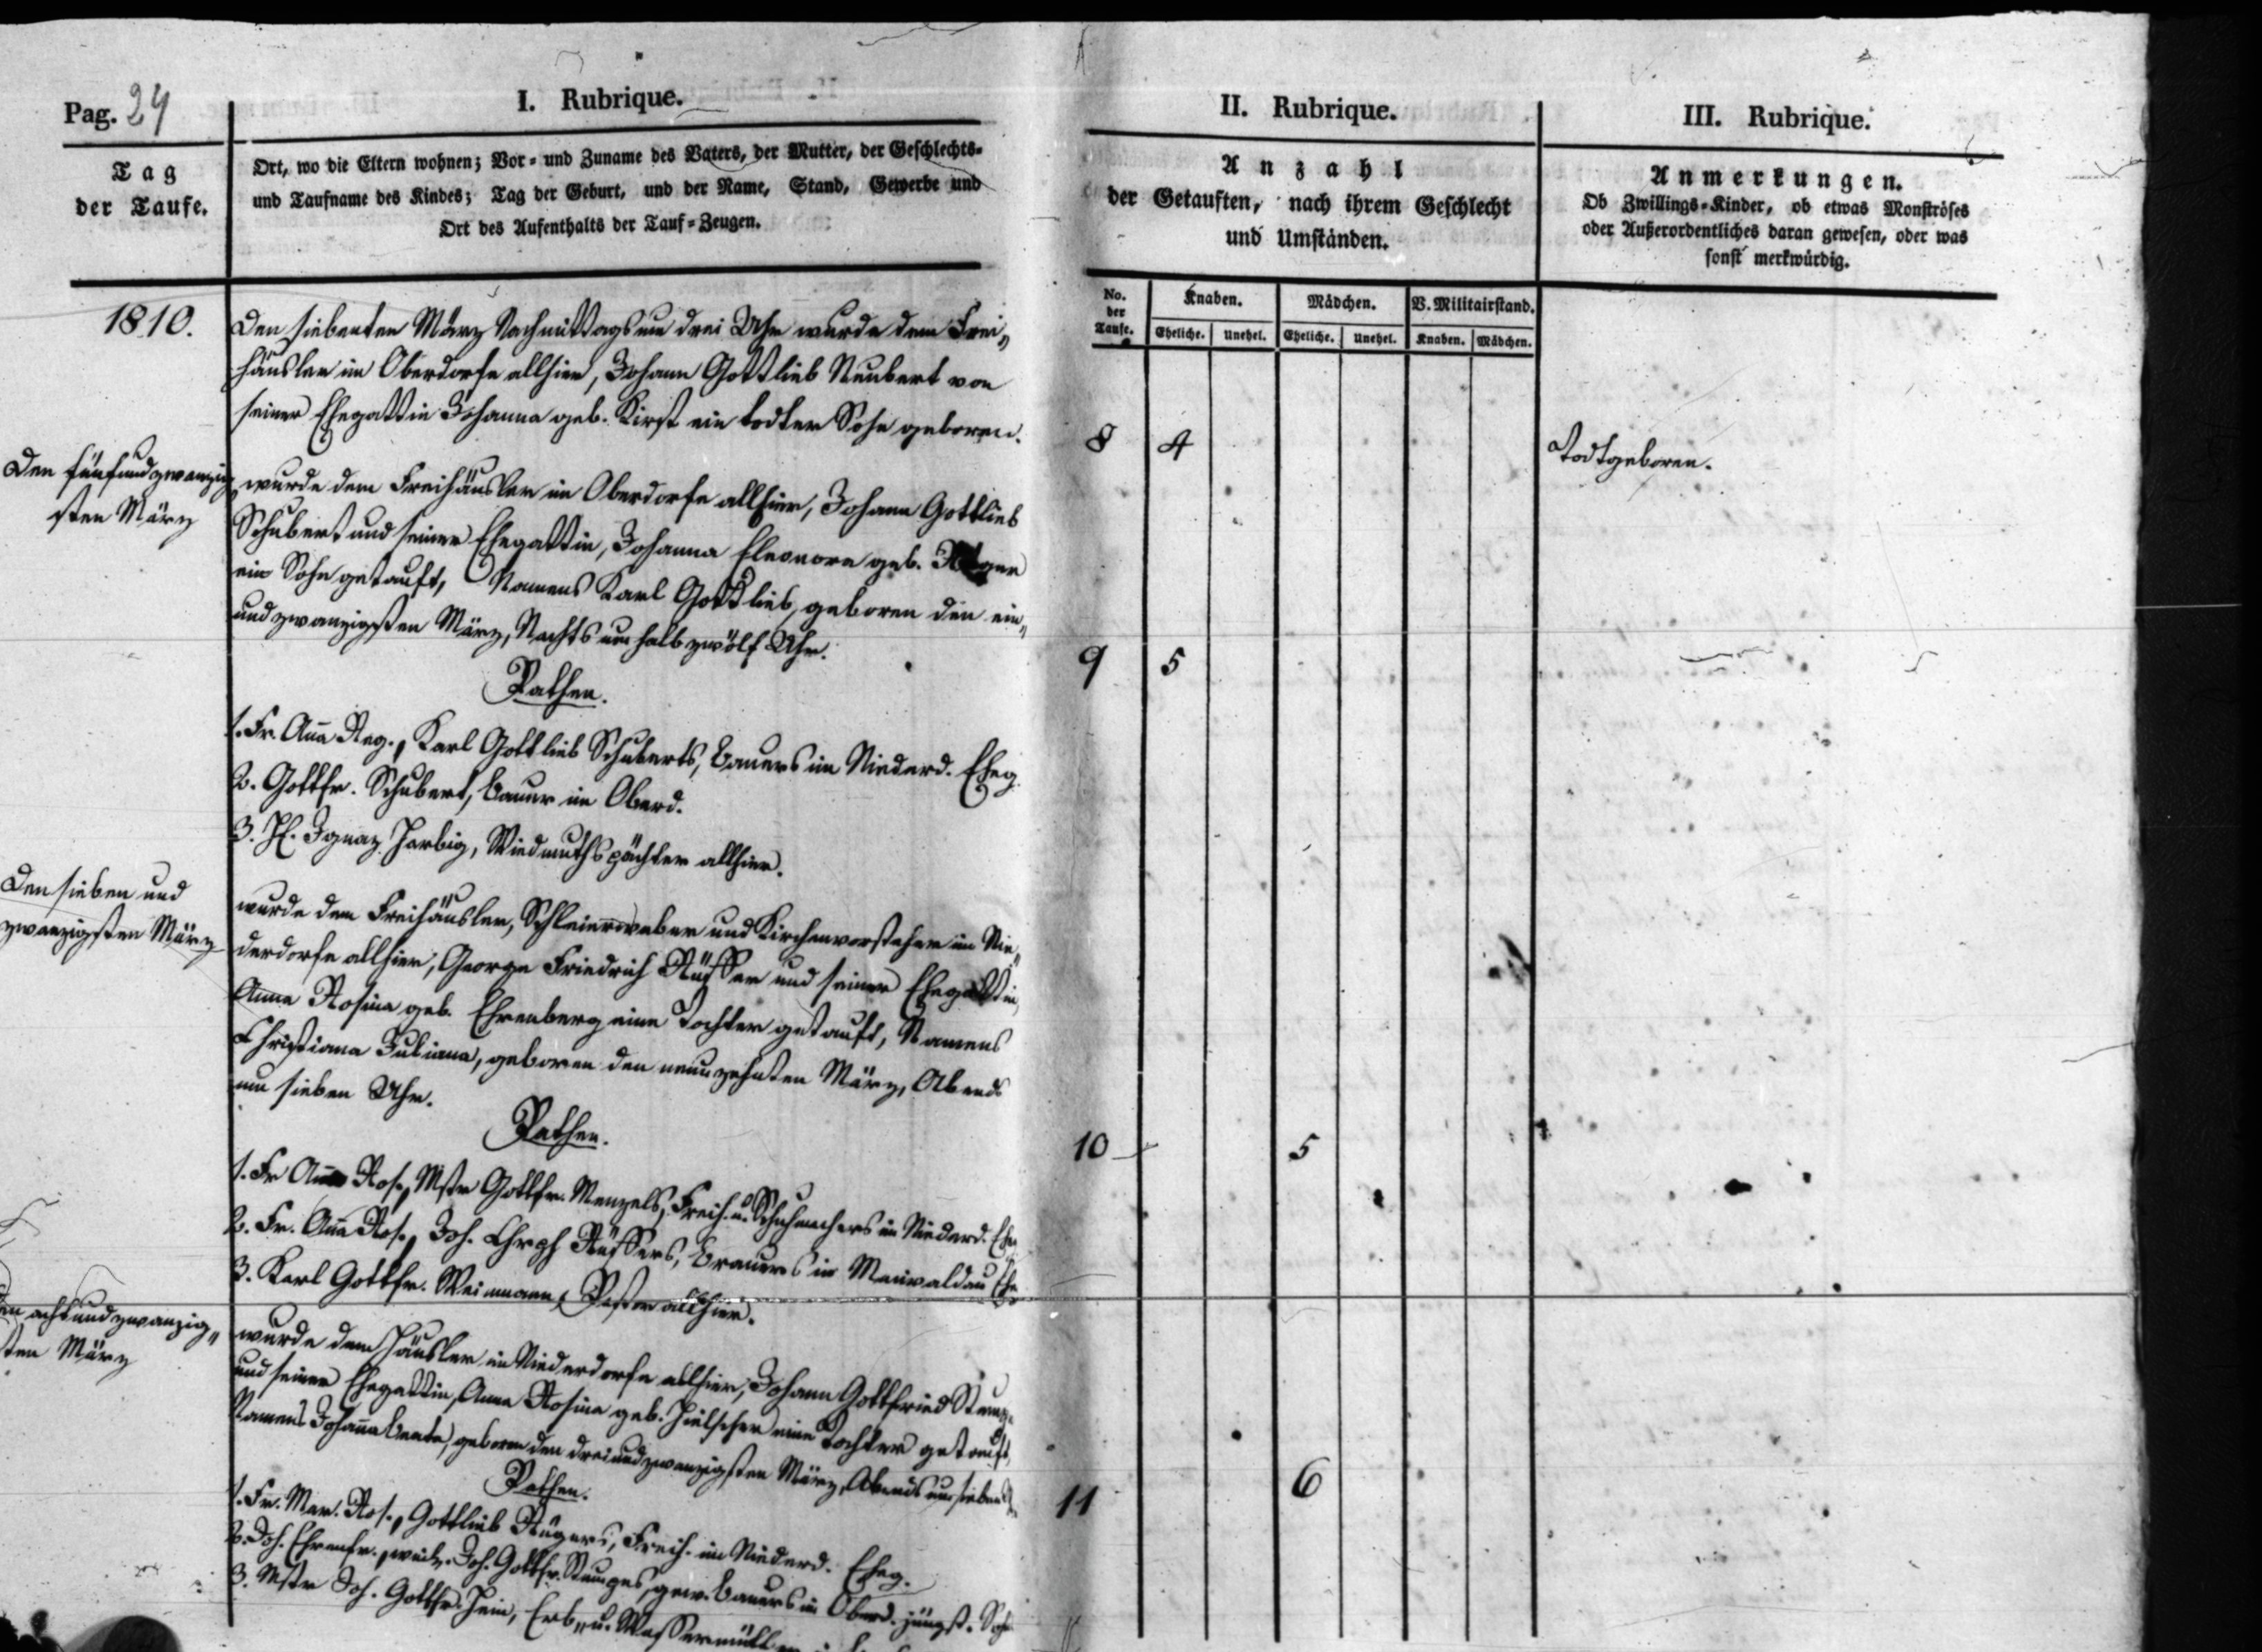 Pag. 24
I. Rubrique.
Tag
der Taufe.
Ort, wo die Eltern wohnen; Vor- und Zuname des Vaters, der Mutter, der Geschlechts-
und Taufname des Kindes; Tag der Geburt, und der Name, Stand, Gewerbe und
Ort des Aufenthalts der Tauf-Zeugen.
1810.
Den siebenten März Nachmittags um drei Uhr wurde dem Frei„
häusler im Oberdorfe allhier, Johann Gottlieb Neubert von
seiner Ehegattin Johanna geb. Kirst ein todter Sohn geboren.
Den fünfundzwanzig
sten März
wurde dem Freihäusler im Oberdorfe allhier, Johann Gottlieb
Schubert und seiner Ehegattin, Johanna Eleonore geb.
ein Sohn getauft, Namens Karl Gottlieb, geboren den ein„
undzwanzigsten März, Nachts um halb zwölf Uhr.
Pathen.
1. Fr. Aña Reg., Karl Gottlieb Schuberts, Bauers im Niederd. Eheg.
2. Gottfr. Schubert, Bauer im Oberd.
3. H. Ignaz Harbig, Wiedmuthspächter allhier.
Den sieben und
zwanzigsten März
wurde dem Freihäusler, Schleierweber und Kirchenvorsteher im Nie„
derdorfe allhier, George Friedrich Rüffer und seiner Ehegattin,
Anna Rosina geb. Ehrenberg eine Tochter getauft, Namens
Christiana Juliana, geboren den neunzehnten März, Abends
um sieben Uhr.
Pathen.
1. Fr. Ros., Mstr Gottfr. Menzels, Freih. u. Schuhmachers im Niederd. Eheg
2. Fr. Aña Ros., Joh. Chrph Rüffers, Brauers in Maiwaldau Ehe
3. Karl Gottfr. Weimann, Pastor allhier.
den achtundzwanzig„
sten März
wurde dem Häusler im Niederdorfe allhier, Johann Gottfried
und seiner Ehegattin, Anna Rosina geb. Hielscher eine Tochter getauft,
Namens Johaña Beate, geboren den dreiundzwanzigsten März, Abends um sieben
Pathen.
1. Fr. Mar. Ros., Gottlieb Rügers, Freih. im Niederd. Eheg.
2. Joh. Ehrenfr., weil. Joh. Gottfr. gew. Bauers im Oberd. jüngst. Sohn
3. Mstr Joh. Gottfr. Hein, Erb„ u. Wassermüller
II. Rubrique.
Anzahl
der Getauften, nach ihrem Geschlecht
und Umständen.
No. der Taufe.
Knaben.
Mädchen.
V. Militairstand.
Eheliche. Unehel. Eheliche. Unehel. Knaben. Mädchen.
8 4
9 5
10 5
11 6
III. Rubrique.
Anmerkungen.
Ob Zwillings-Kinder, ob etwas Monströses
oder Außerordentliches daran gewesen, oder was
sonst merkwürdig.
Todtgeboren.